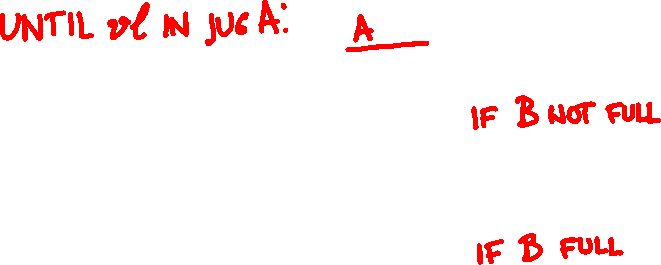 UNTIL vl IN JUG A: A
IF B NOT FULL
IF B FULL